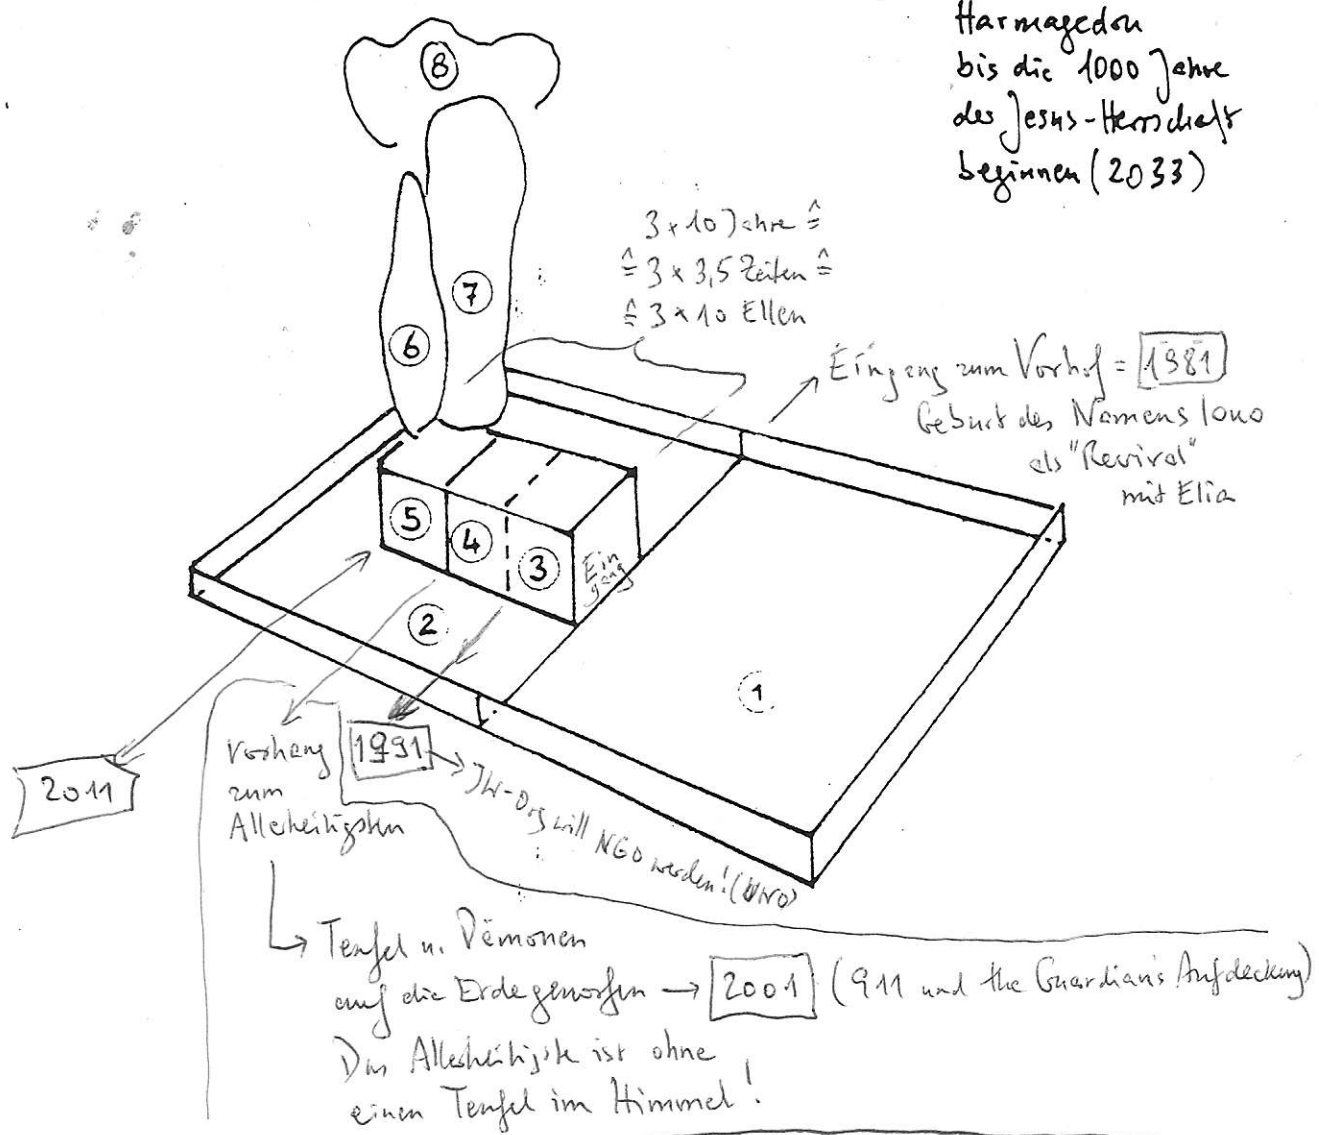 Harmagedon
bis die 1000 Jahre
des Jesus-Herrschaft
beginnen (2033)
8
3 x 10 Jahre ≙
≙ 3 x 3,5 Zeiten ≙
≙ 3 x 10 Ellen
7
6
Eingang zum Vorhof = 1981
Geburt des Namens Iouo
als "Revival"
mit Elia
5
4
3
Ein
gang
2
1
2011
Vorhang
zum
Allerheiligsten
1991
JW-Org will NGO werden! (UNO)
Teufel u. Dämonen
auf die Erde geworfen → 2001 (911 und the Guardian's Aufdeckung)
Das Allerheiligste ist ohne
einen Teufel im Himmel!